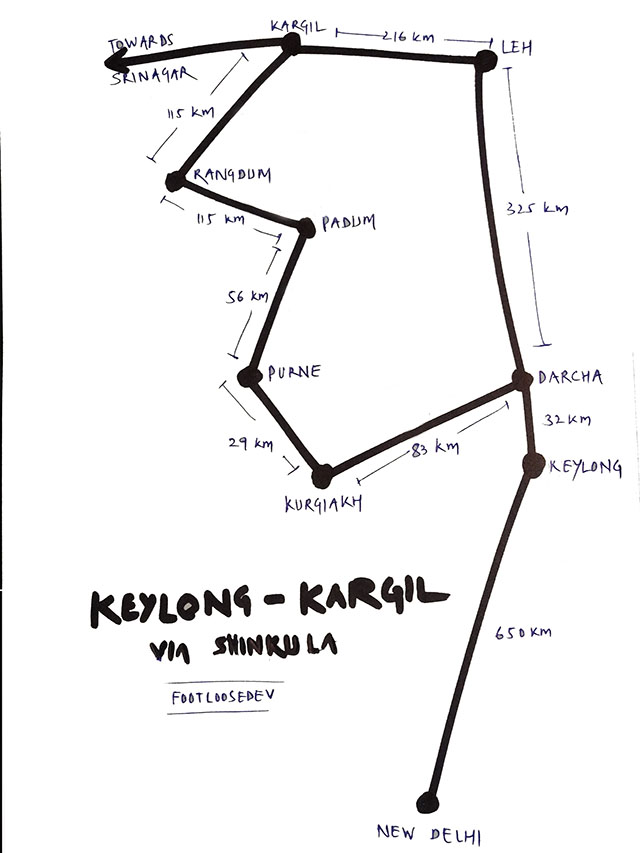 KARGIL
216 KM
LEH
TOWARDS
SRINAGAR
115 KM
RANGDUM
115 KM
PADUM
325 KM
56 KM
PURNE
DARCHA
32 KM
29 KM
83 KM
KEYLONG
KURGIAKH
KEYLONG - KARGIL
VIA SHINKULA
FOOTLOOSEDEV
650 KM
NEW DELHI